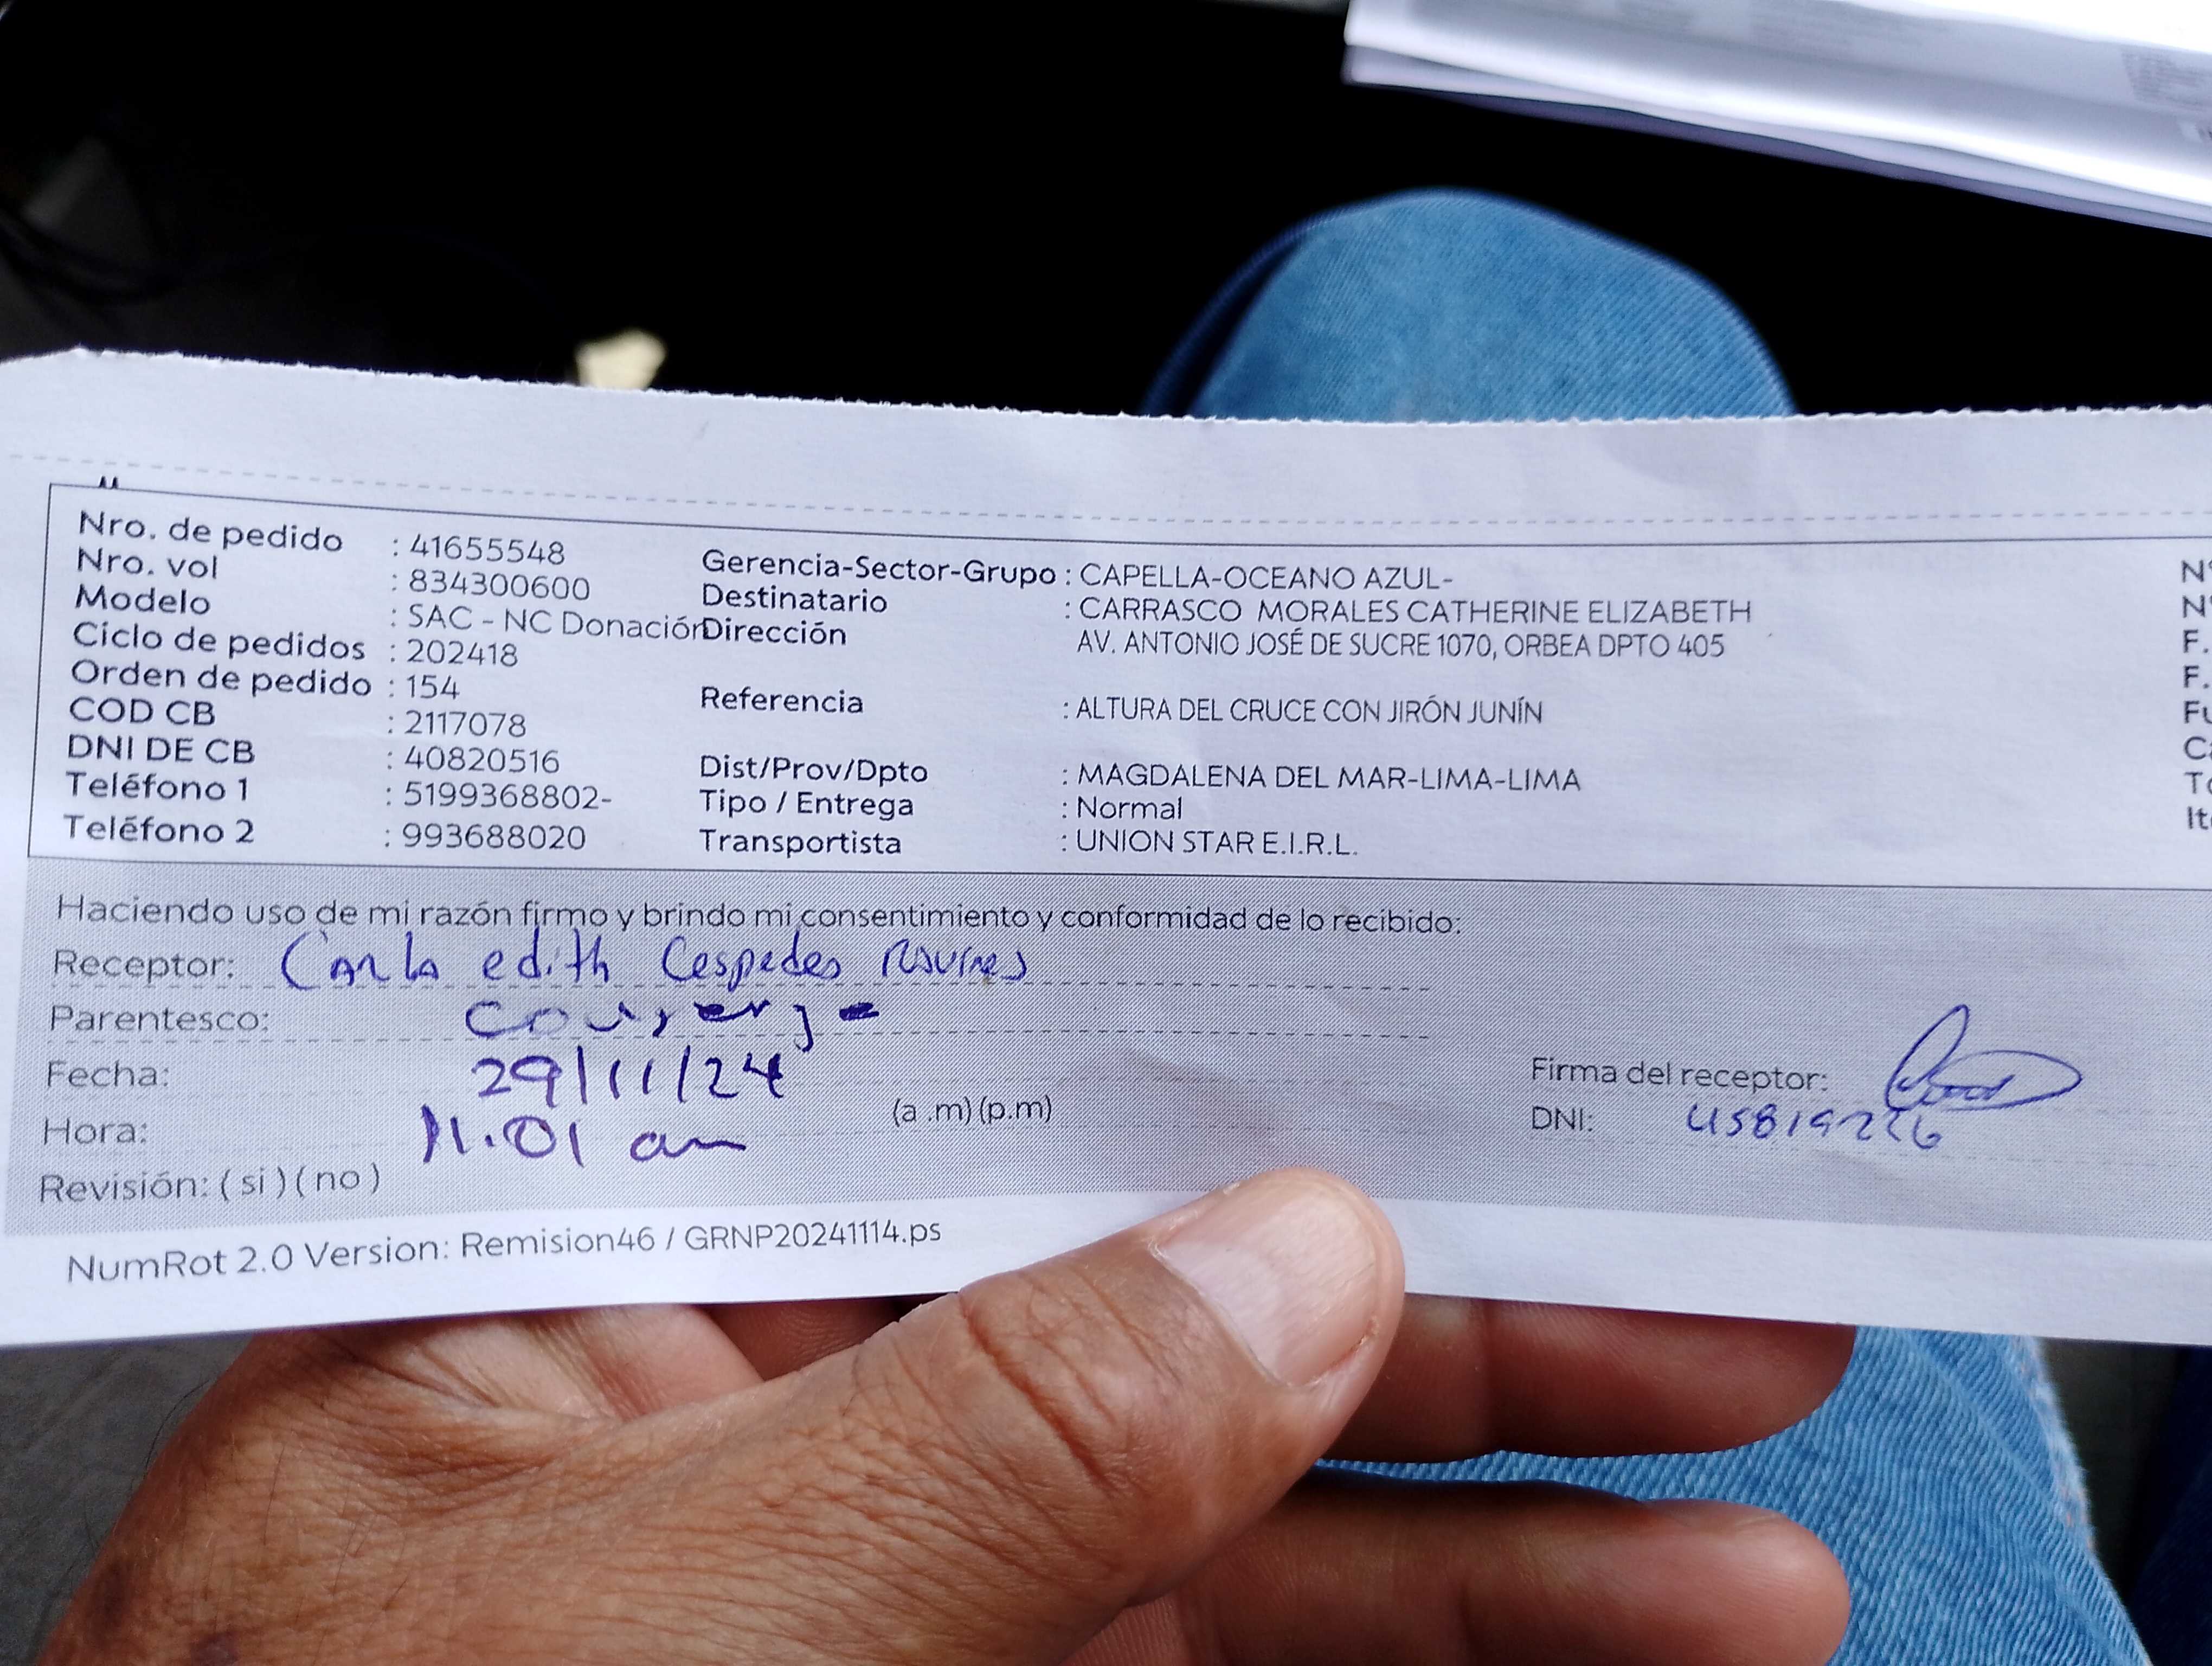 Nro. de pedido : 41655548
Nro. vol : 834300600
Modelo : SAC - NC Donación
Ciclo de pedidos : 202418
Orden de pedido : 154
COD CB : 2117078
DNI DE CB : 40820516
Teléfono 1 : 5199368802-
Teléfono 2 : 993688020
Gerencia-Sector-Grupo : CAPELLA-OCEANO AZUL-
Destinatario : CARRASCO MORALES CATHERINE ELIZABETH
Dirección AV. ANTONIO JOSÉ DE SUCRE 1070, ORBEA DPTO 405
Referencia : ALTURA DEL CRUCE CON JIRÓN JUNÍN
Dist/Prov/Dpto : MAGDALENA DEL MAR-LIMA-LIMA
Tipo / Entrega : Normal
Transportista : UNION STAR E.I.R.L.
N°
N°
F.
F.
Haciendo uso de mi razón firmo y brindo mi consentimiento y conformidad de lo recibido:
Receptor: Carla edith Cespedes
Parentesco:
Fecha: 29/11/24
Hora: 11:01 am (a .m) (p.m)
Revisión: ( si ) ( no )
Firma del receptor:
DNI: 45819226
NumRot 2.0 Version: Remision46 / GRNP20241114.ps